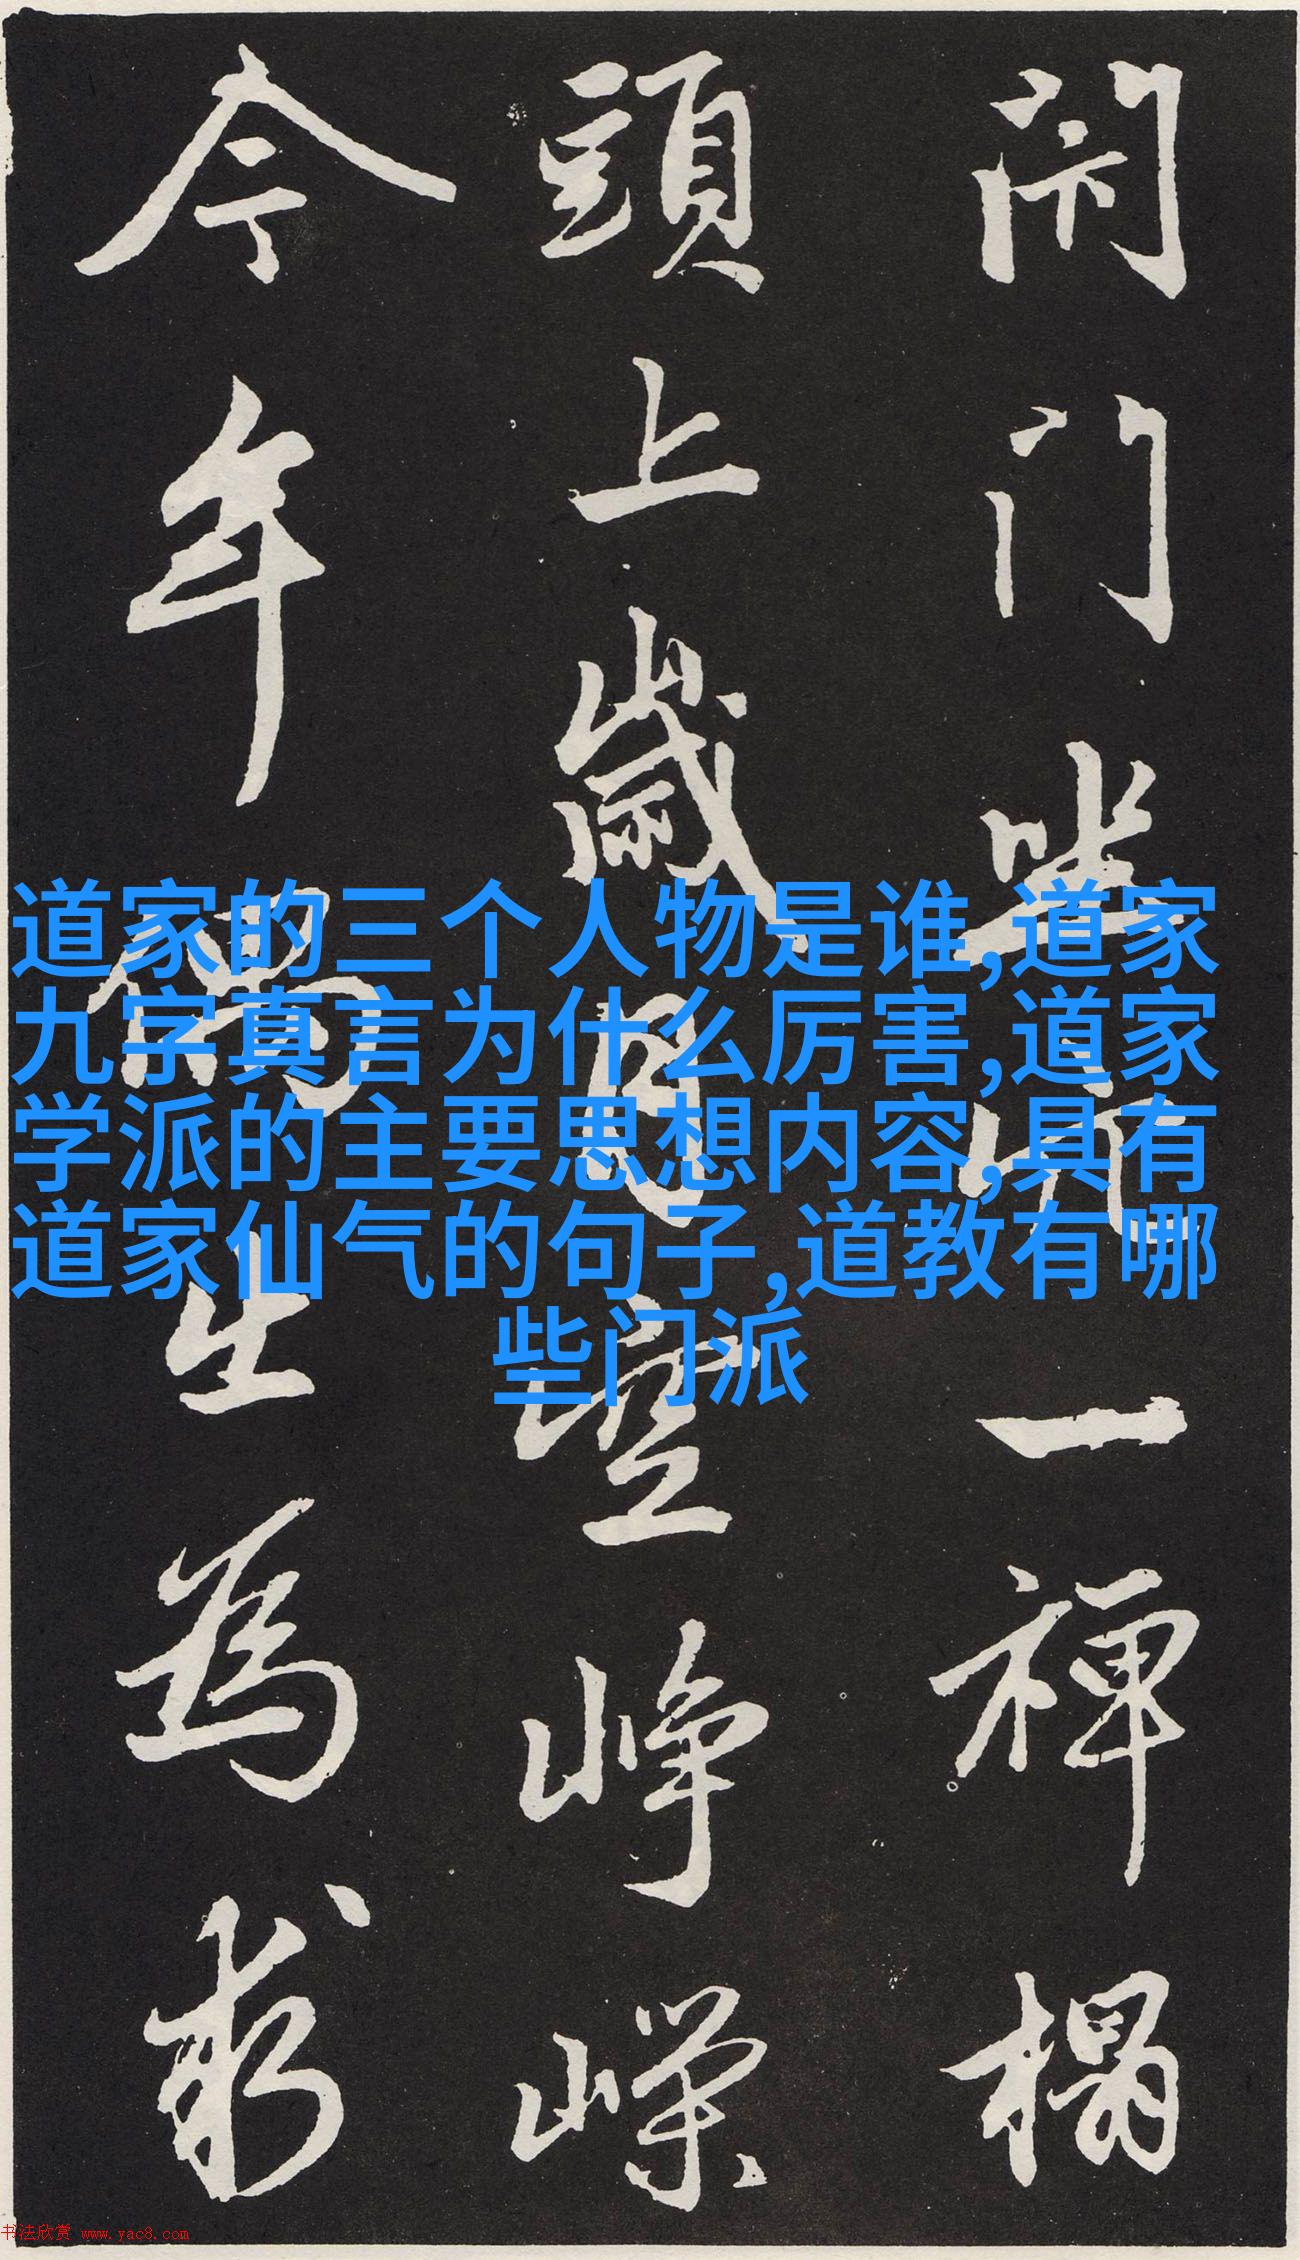 闭门坐穴一禅榻
頭上歲月空崢嶸
今年偶出為求
道家的三个人物是谁,道家
九字真言为什么厉害,道家
学派的主要思想内容,具有
道家仙气的句子,道教有哪
些门派
书法欣赏 www.yac8.com